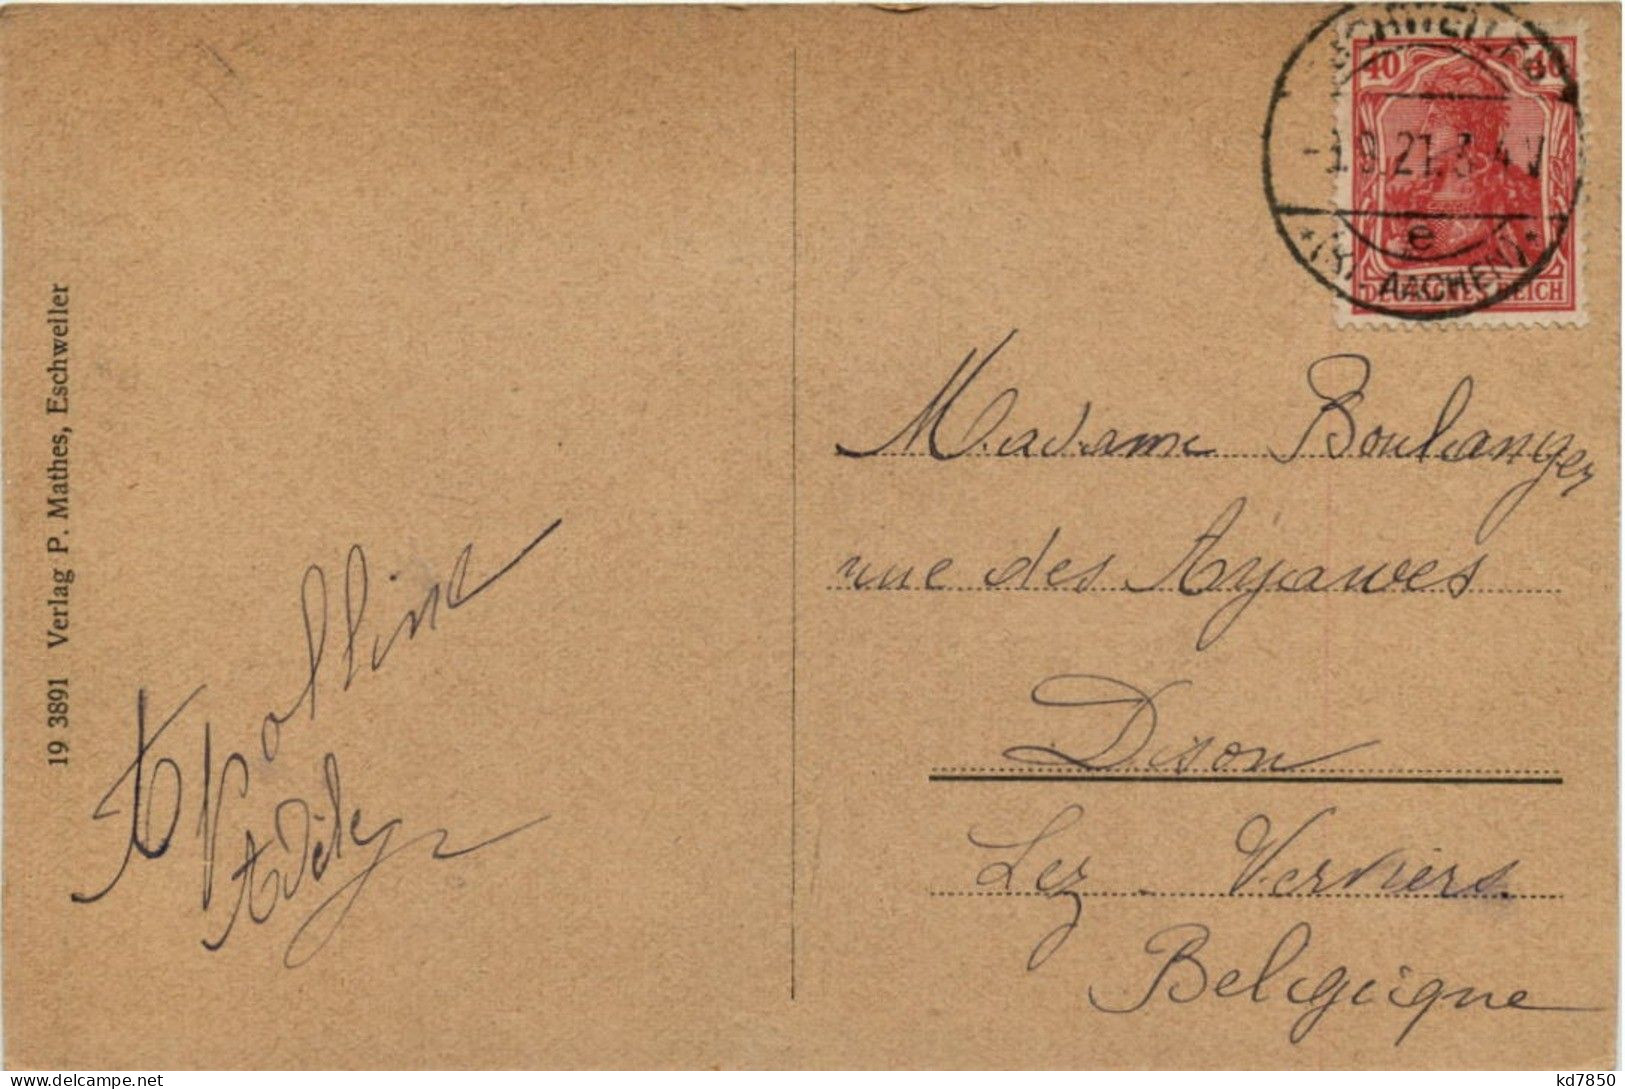 19 3891 Verlag P. Mathes, Eschweiler
Apolline
Adèle
40 40
DEUTSCHES REICH
ESCHWEILER
9.21.3-4 V
e
* (BZ. AACHEN) *
Madame Boulanger
rue des
Dison
Lez-Verviers
Belgique
kd7850